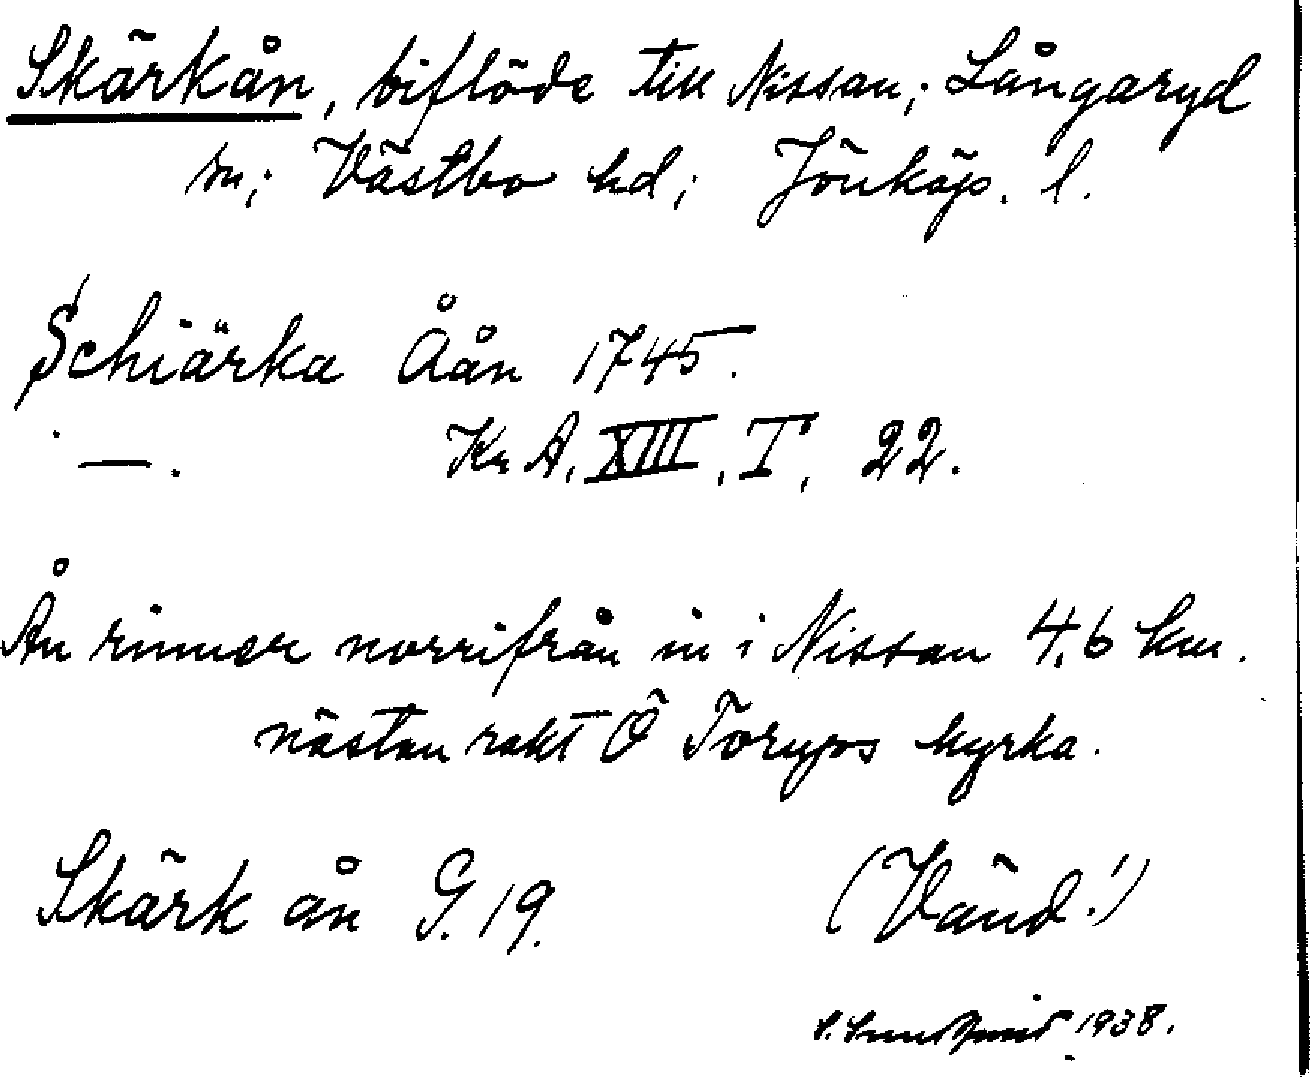 Skärkån, biflöde till Nissan; Långaryd
sn; Västbo hd; Jönköp. l.
Schiärka Åån 1745.
—. Kr A. XIII, I, 22.
Ån rinner norrifrån in i Nissan 4,6 km.
nästan rakt Ö Torups kyrka.
Skärk ån G. 19.
(Vänd!)
1938.